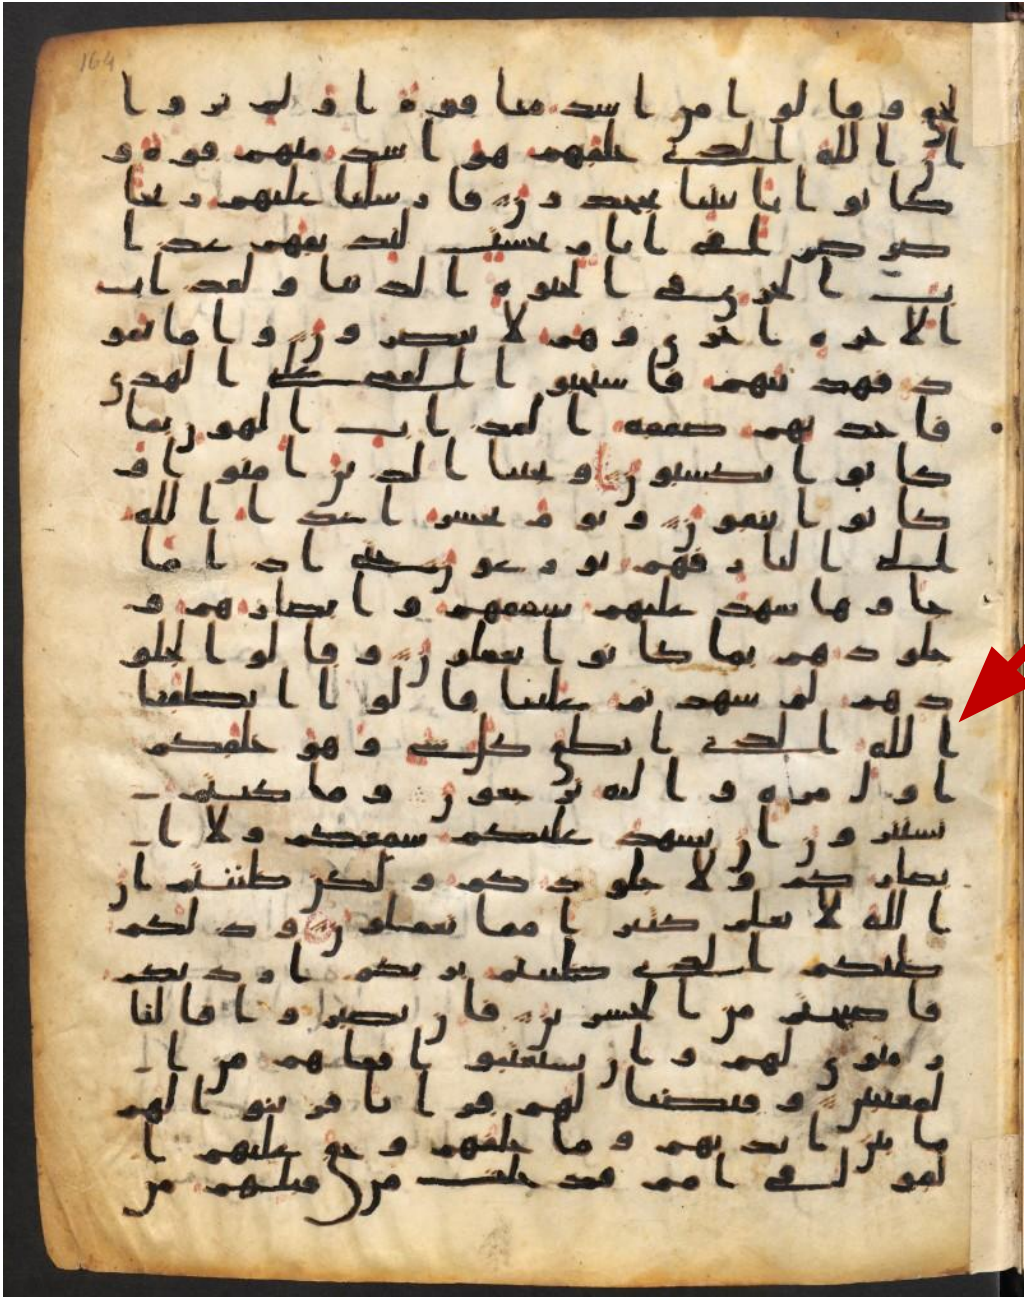 164
لحق وقالوا من اشد منا قوة اولم يروا
ان الله الذي خلقهم هو اشد منهم قوة و
كانوا بايتنا يجحدون فارسلنا عليهم ريحا
صرصرا في ايام نحست لنذيقهم عذا
ب الخزي في الحيوة الدنيا ولعذاب
الاخرة اخزى وهم لا ينصرون واما ثمو
د فهدينهم فاستحبوا العمى على الهدى
فاخذتهم صعقة العذاب الهون بما
كانوا يكسبون ونجينا الذين امنوا و
كانوا يتقون ويوم يحشر اعدا الله
الى النار فهم يوزعون حتى اذا ما
جاوها شهد عليهم سمعهم وابصارهم و
جلودهم بما كانوا يعملون وقالوا لجلو
دهم لم شهدتم علينا قالوا انطقنا
الله الذي انطق كل شى وهو خلقكم
اول مرة واليه ترجعون وما كنتم
تستترون ان يشهد عليكم سمعكم ولا ا
بصاركم ولا جلودكم ولكن ظننتم ان
الله لا يعلم كثيرا مما تعملون وذلكم
ظنكم الذي ظننتم بربكم ارديكم
فاصبحتم من الخسرين فان يصبروا فالنا
ر مثوى لهم وان يستعتبوا فما هم من ا
لمعتبين وقيضنا لهم قرنا فزينوا لهم
ما بين ايديهم وما خلفهم وحق عليهم ا
لقول في امم قد خلت من قبلهم من